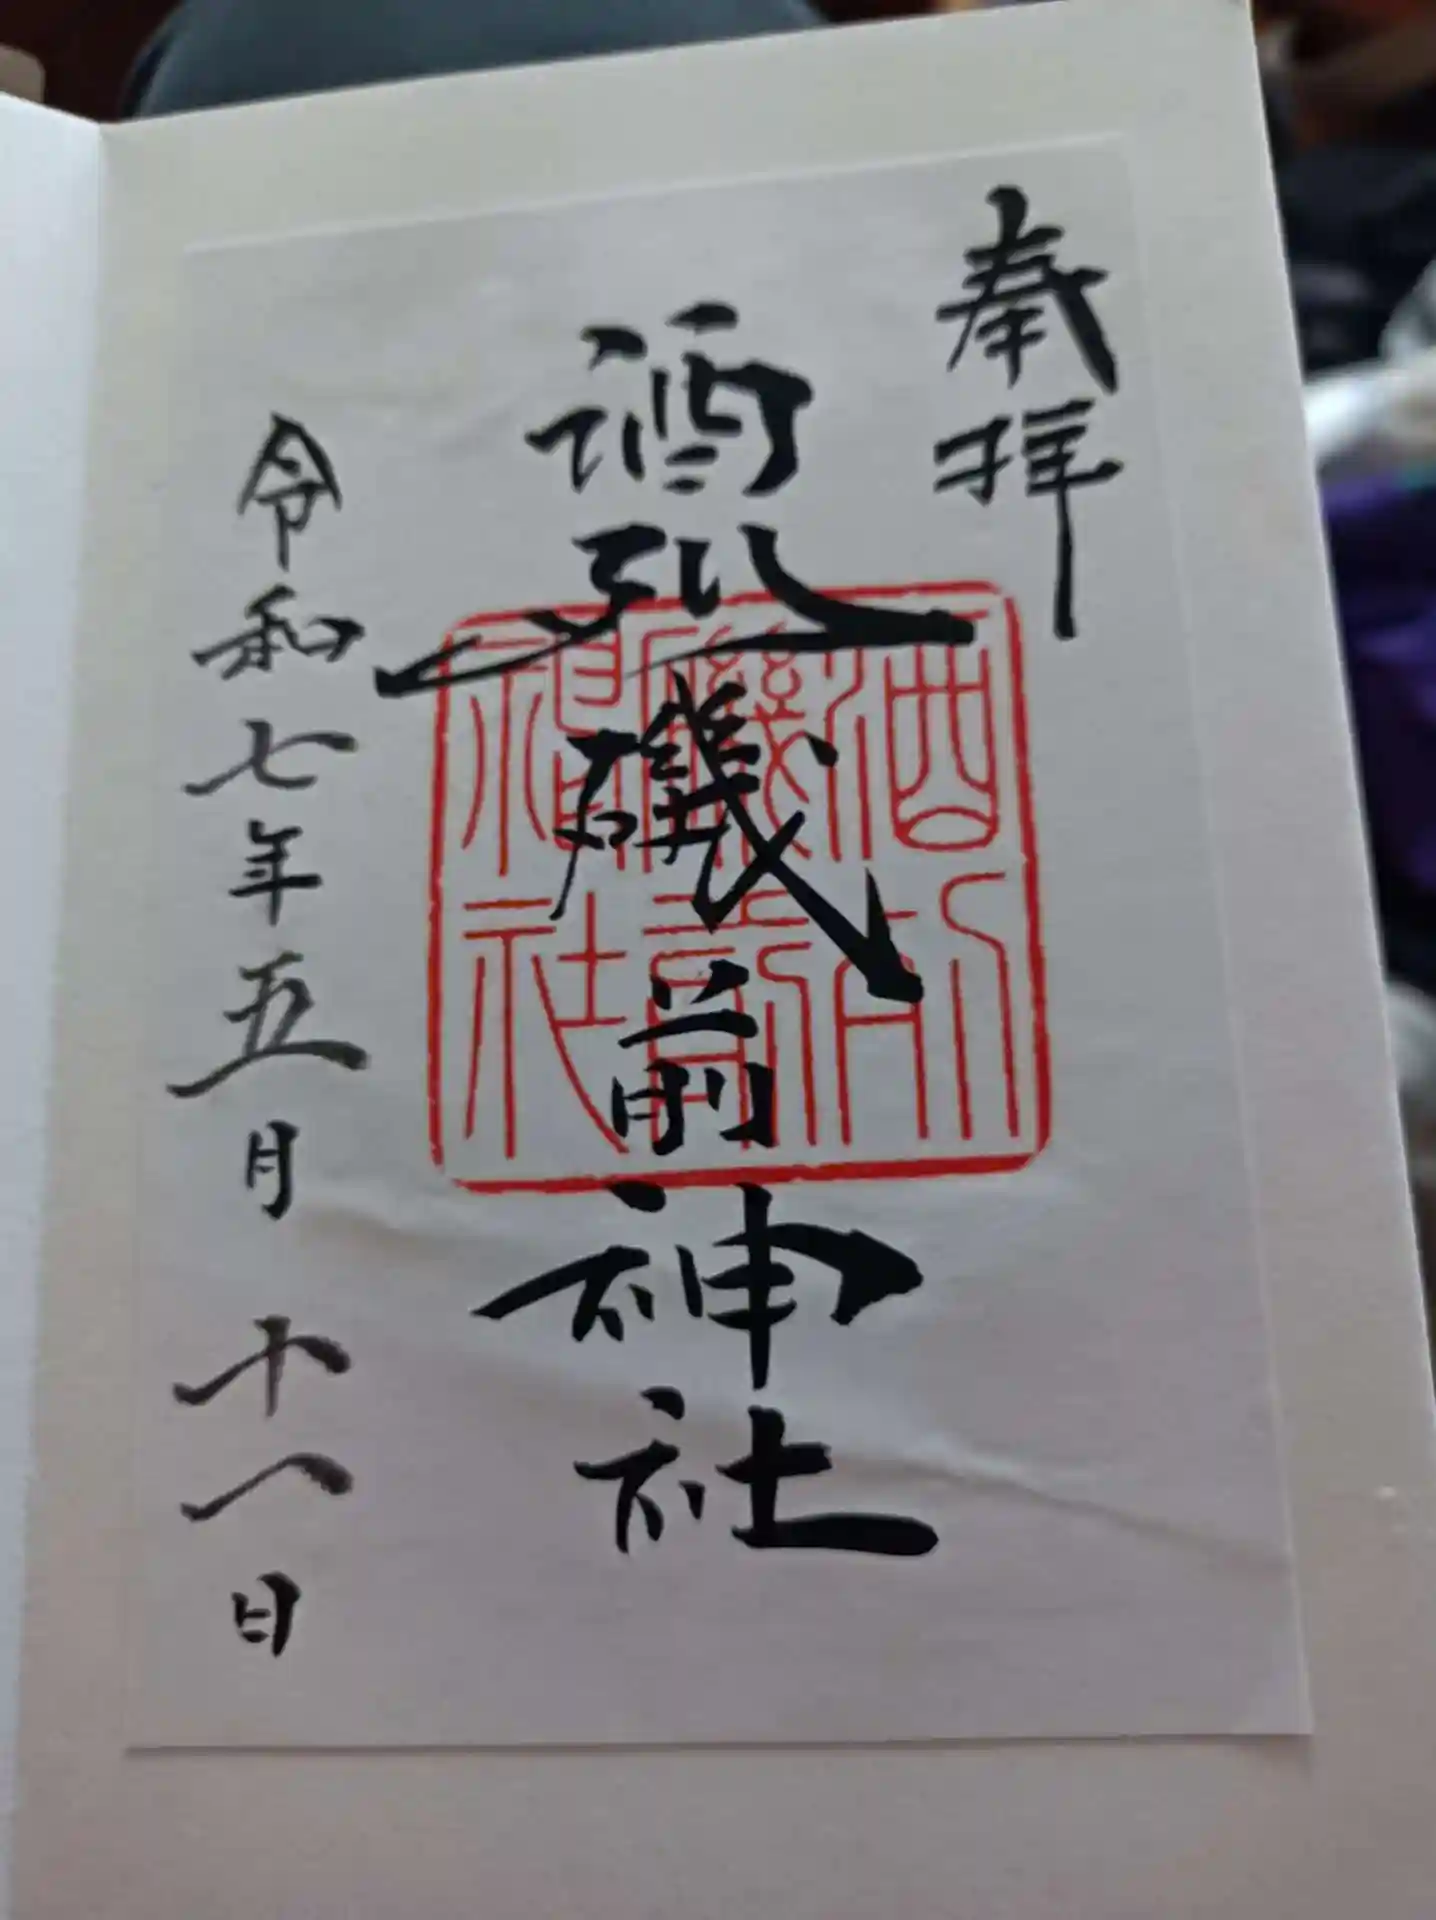 奉拝
酒列磯前神社
令和七年五月十八日
酒列
磯前
神社